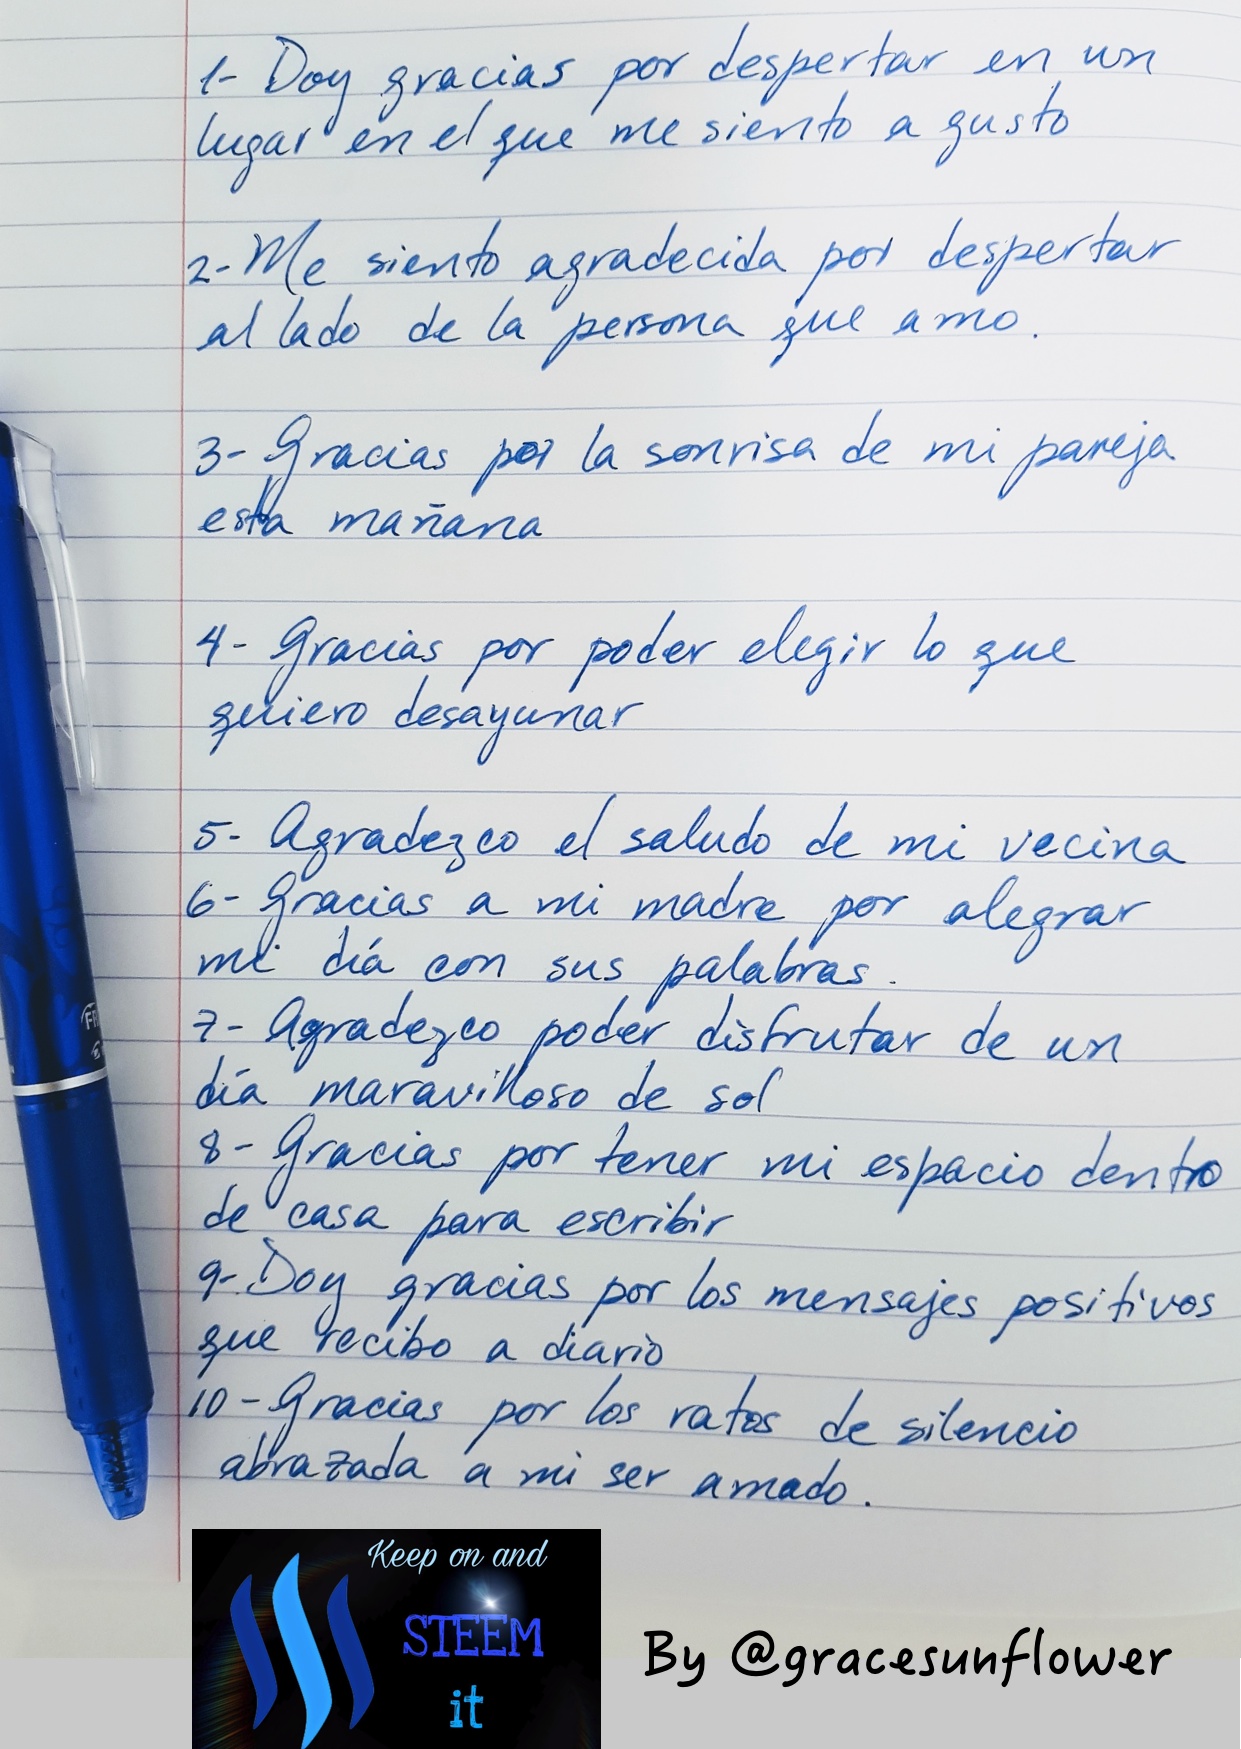 1- Doy gracias por despertar en un
lugar en el que me siento a gusto
2- Me siento agradecida por despertar
al lado de la persona que amo.
3- Gracias por la sonrisa de mi pareja
esta mañana
4- Gracias por poder elegir lo que
quiero desayunar
5- Agradezco el saludo de mi vecina
6- Gracias a mi madre por alegrar
mi día con sus palabras.
7- Agradezco poder disfrutar de un
día maravilloso de sol
8- Gracias por tener mi espacio dentro
de casa para escribir
9- Doy gracias por los mensajes positivos
que recibo a diario
10- Gracias por los ratos de silencio
abrazada a mi ser amado.
Keep on and
STEEM
it
By @gracesunflower